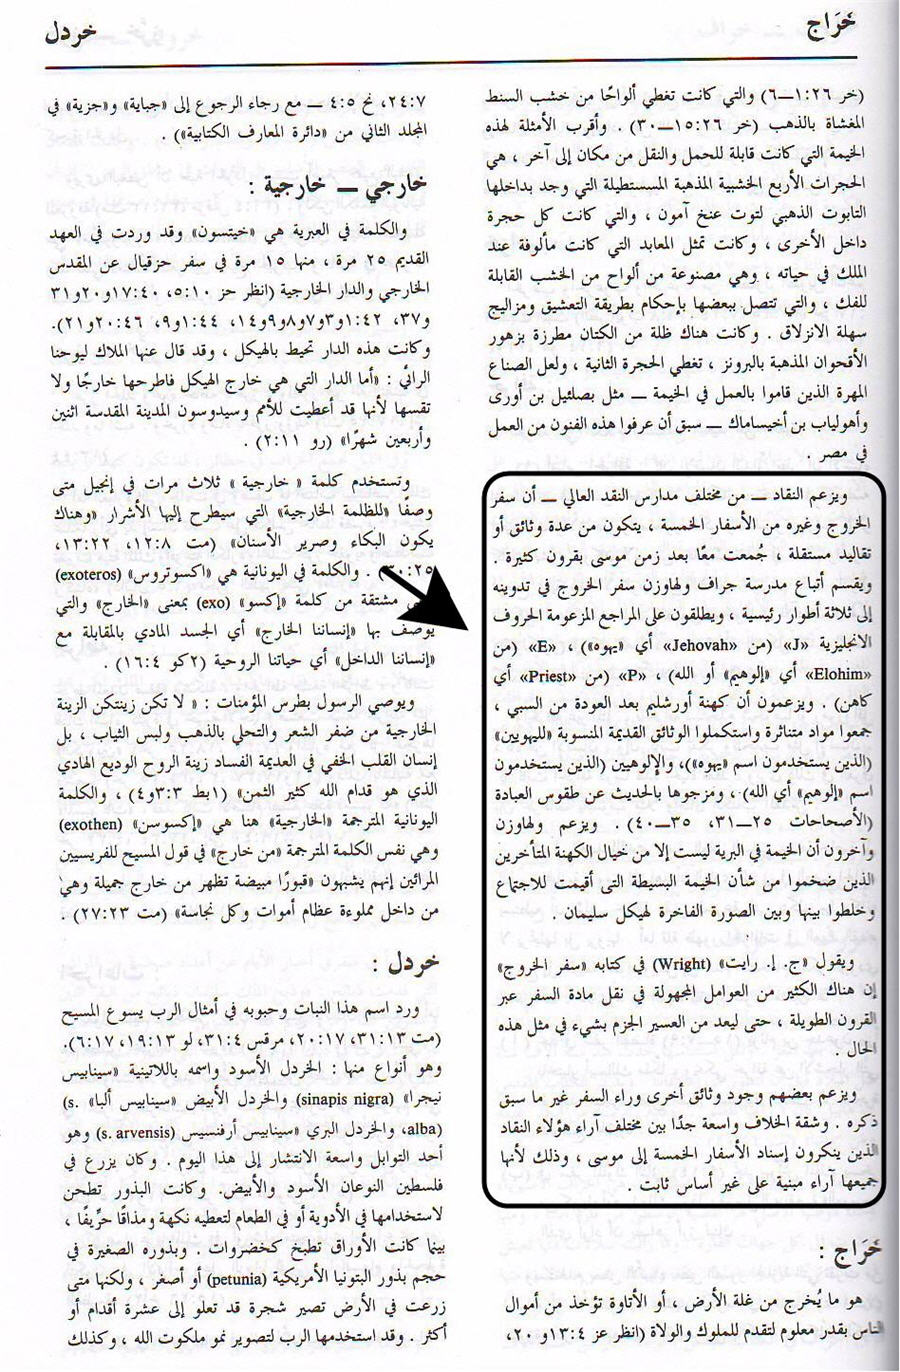 خَرَاج
خردل
(خر ٢٦:١—٦) والتي كانت تغطي ألواحًا من خشب السنط
المغشاة بالذهب (خر ٢٦:١٥—٣٠) . وأقرب الأمثلة لهذه
الخيمة التي كانت قابلة للحمل والنقل من مكان إلى آخر ، هي
الحجرات الأربع الخشبية المذهبة المسستطيلة التي وجد بداخلها
التابوت الذهبي لتوت عنخ آمون ، والتي كانت كل حجرة
داخل الأخرى ، وكانت تمثل المعابد التي كانت مألوفة عند
الملك في حياته ، وهي مصنوعة من ألواح من الخشب القابلة
للفك ، والتي تتصل ببعضها بإحكام بطريقة التعشيق ومزاليج
سهلة الانزلاق . وكانت هناك ظلة من الكتان مطرزة بزهور
الأقحوان المذهبة بالبرونز ، تغطي الحجرة الثانية ، ولعل الصناع
المهرة الذين قاموا بالعمل في الخيمة — مثل بصلئيل بن أورى
وأهولياب بن أخيساماك — سبق أن عرفوا هذه الفنون من العمل
في مصر .
ويزعم النقاد — من مختلف مدارس النقد العالي — أن سفر
الخروج وغيره من الأسفار الخمسة ، يتكون من عدة وثائق أو
تقاليد مستقلة ، جُمعت معًا بعد زمن موسى بقرون كثيرة .
ويقسم أتباع مدرسة جراف ولهاوزن سفر الخروج في تدوينه
إلى ثلاثة أطوار رئيسية ، ويطلقون على المراجع المزعومة الحروف
الانجليزية «J» (من «Jehovah» أي «يهوه») ، «E» (من
«Elohim» أي «إلوهيم» أو الله) ، «P» (من «Priest» أي
كاهن) . ويزعمون أن كهنة أورشليم بعد العودة من السبي ،
جمعوا مواد متناثرة واستكملوا الوثائق القديمة المنسوبة «لليهويين»
(الذين يستخدمون اسم «يهوه»)، والإلوهيين (الذين يستخدمون
اسم «إلوهيم» أي الله) ، ومزجوها بالحديث عن طقوس العبادة
(الأصحاحات ٢٥—٣١، ٣٥—٤٠) . ويزعم ولهاوزن
وآخرون أن الخيمة في البرية ليست إلا من خيال الكهنة المتأخرين
الذين ضخموا من شأن الخيمة البسيطة التى أقيمت للاجتماع
وخلطوا بينها وبين الصورة الفاخرة لهيكل سليمان .
ويقول «ج. إ. رايت» (Wright) في كتابه «سفر الخروج»
إن هناك الكثير من العوامل المجهولة في نقل مادة السفر عبر
القرون الطويلة ، حتى ليعد من العسير الجزم بشيء في مثل هذه
الحال .
ويزعم بعضهم وجود وثائق أخرى وراء السفر غير ما سبق
ذكره . وشقة الخلاف واسعة جدًا بين مختلف آراء هؤلاء النقاد
الذين ينكرون إسناد الأسفار الخمسة إلى موسى ، وذلك لأنها
جميعها آراء مبنية على غير أساس ثابت .
خَرَاج :
هو ما يُخرج من غلة الأرض ، أو الأتاوة تؤخذ من أموال
الناس بقدر معلوم لتقدم للملوك والولاة (انظر عز ٤:١٣و ٢٠،
٢٤:٧، نح ٥:٤ — مع رجاء الرجوع إلى «جباية» و«جزية» في
المجلد الثاني من «دائرة المعارف الكتابية») .
خارجي — خارجية :
والكلمة في العبرية هي «خيتسون» وقد وردت في العهد
القديم ٢٥ مرة ، منها ١٥ مرة في سفر حزقيال عن المقدس
الخارجي والدار الخارجية (انظر حز ١٠:٥، ٤٠:١٧و٢٠و٣١
و٣٧، ٤٢:١و٣و٧و٨و٩و١٤، ٤٤:١و٩، ٤٦:٢٠و٢١).
وكانت هذه الدار تحيط بالهيكل ، وقد قال عنها الملاك ليوحنا
الرائي : «أما الدار التي هي خارج الهيكل فاطرحها خارجًا ولا
تقسها لأنها قد أعطيت للأمم وسيدوسون المدينة المقدسة اثنين
وأربعين شهرًا» (رو ١١:٢) .
وتستخدم كلمة « خارجية » ثلاث مرات في إنجيل متى
وصفًا «للظلمة الخارجية» التي سيطرح إليها الأشرار «وهناك
يكون البكاء وصرير الأسنان» (مت ٨:١٢، ٢٢:١٣،
٢٥:٣٠) . والكلمة في اليونانية هي «اكسوتروس» (exoteros)
مشتقة من كلمة «إكسو» (exo) بمعنى «الخارج» والتي
يوصف بها «إنساننا الخارج» أي الجسد المادي بالمقابلة مع
«إنساننا الداخل» أي حياتنا الروحية (٢كو ٤:١٦) .
ويوصي الرسول بطرس المؤمنات : « لا تكن زينتكن الزينة
الخارجية من ضفر الشعر والتحلي بالذهب ولبس الثياب ، بل
إنسان القلب الخفي في العديمة الفساد زينة الروح الوديع الهادي
الذي هو قدام الله كثير الثمن» (١بط ٣:٣و٤) ، والكلمة
اليونانية المترجمة «الخارجية» هنا هي «إكسوسن» (exothen)
وهي نفس الكلمة المترجمة «من خارج» في قول المسيح للفريسيين
المرائين إنهم يشبهون «قبورًا مبيضة تظهر من خارج جميلة وهي
من داخل مملوءة عظام أموات وكل نجاسة» (مت ٢٣:٢٧) .
خردل :
ورد اسم هذا النبات وحبوبه في أمثال الرب يسوع المسيح
(مت ١٣:٣١، ١٧:٢٠، مرقس ٤:٣١، لو ١٣:١٩، ١٧:٦).
وهو أنواع منها : الخردل الأسود واسمه باللاتينية «سينابيس
نيجرا» (sinapis nigra) والخردل الأبيض «سينابيس ألبا» (s.
alba)، والخردل البري «سينابيس أرفنسيس (s. arvensis) وهو
أحد التوابل واسعة الانتشار إلى هذا اليوم . وكان يزرع في
فلسطين النوعان الأسود والأبيض. وكانت البذور تطحن
لاستخدامها في الأدوية أو في الطعام لتعطيه نكهة ومذاقًا حرِّيفًا ،
بينما كانت الأوراق تطبخ كخضروات . وبذوره الصغيرة في
حجم بذور البتونيا الأمريكية (petunia) أو أصغر ، ولكنها متى
زرعت في الأرض تصير شجرة قد تعلو إلى عشرة أقدام أو
أكثر . وقد استخدمها الرب لتصوير نمو ملكوت الله ، وكذلك